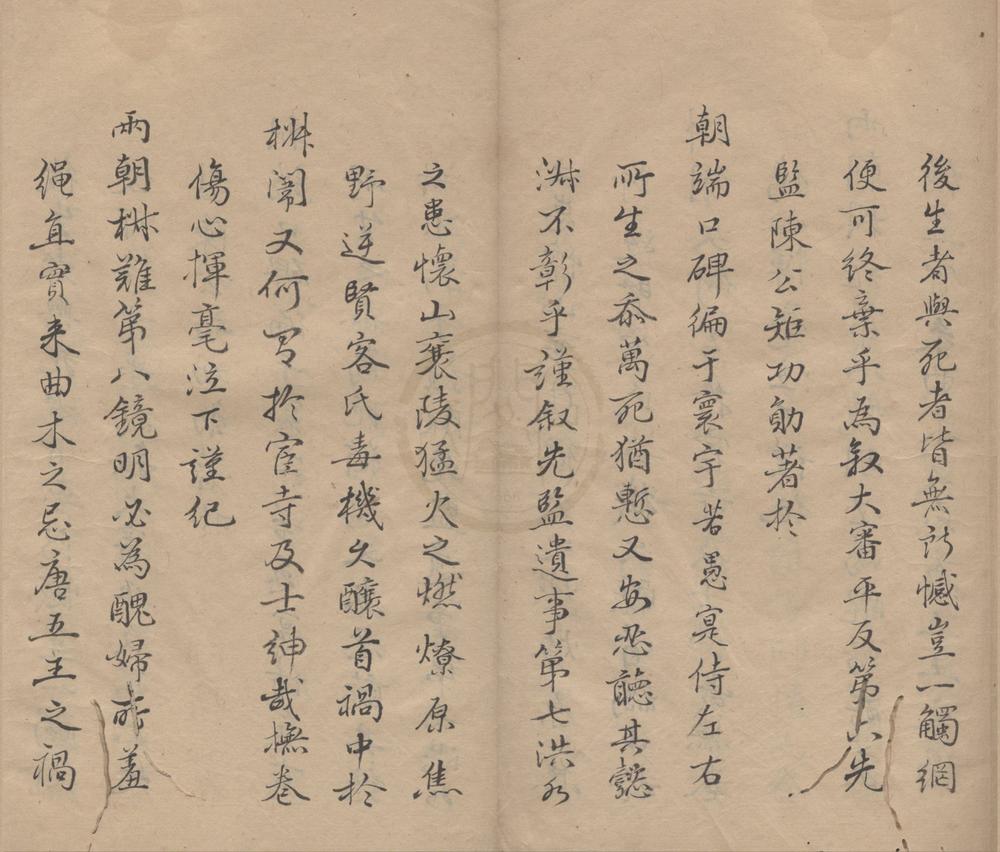 後生者與死者皆無所憾豈一觸網
便可終棄乎為敘大審平反第六先
監陳公矩功勛著於
朝端口碑徧于寰宇若愚寔侍左右
所生之忝萬死猶慙又安忍聽其懿
淋不彰乎謹叙先監遺事第七洪水
之患懷山襄陵猛火之燃燎原焦
野逆賢客氏毒機久釀首禍中於
椒闈又何有於宦寺及士紳哉撫卷
傷心揮毫泣下謹紀
兩朝椒難第八鏡明必為醜婦所羞
繩直實来曲木之忌唐五王之禍